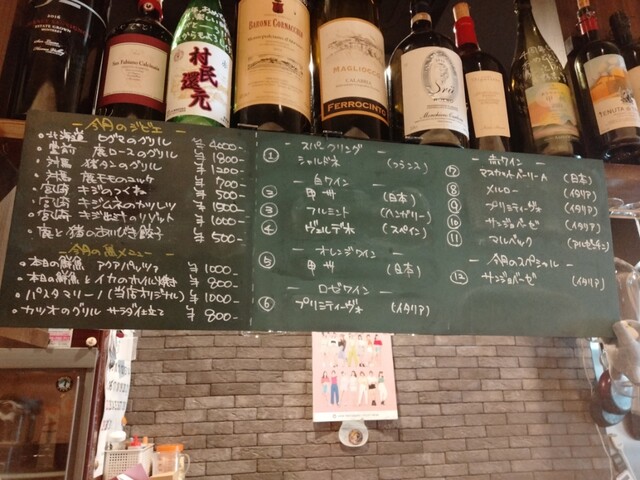 2016
San Fabiano Calcinaia
村民還元
BARONE CORNACCHIA
MAGLIOCCO
CALABRIA
FERROCINTO
TENUTA
ー 今月のジビエ ー
・北海道 ヒグマのグリル ¥4000-
鹿ロースのグリル ¥1800-
・対馬 猪タンのグリル ¥1200-
・対馬 鹿モモのユッケ ¥700-
・宮崎 キジのつくね ¥500-
・宮崎 キジムネのカツレツ ¥1500-
・宮崎 キジ出汁のリゾット ¥1000-
・鹿と猪の餃子 ¥500-
ー 今月の黒メニュー ー
・本日の鮮魚 アクアパッツァ ¥1000-
・本日の鮮魚とイカのオイル焼き ¥800-
・パスタマリーノ(当店オリジナル) ¥1000-
・カツオのグリル サラダ仕立て ¥800-
ー スパークリング ー
① シャルドネ (フランス)
ー 白ワイン ー
② 甲州 (日本)
③ フルミント (ハンガリー)
④ ヴェルデホ (スペイン)
ー オレンジワイン ー
⑤ 甲州 (日本)
ー ロゼワイン ー
⑥ プリミティーヴォ (イタリア)
ー 赤ワイン ー
⑦ マスカットベーリーA (日本)
⑧ メルロー (イタリア)
⑨ プリミティーヴォ (イタリア)
⑩ サンジョベーゼ (イタリア)
⑪ マルベック (アルゼンチン)
ー 今月のスペシャル ー
⑫ サンジョベーゼ (イタリア)